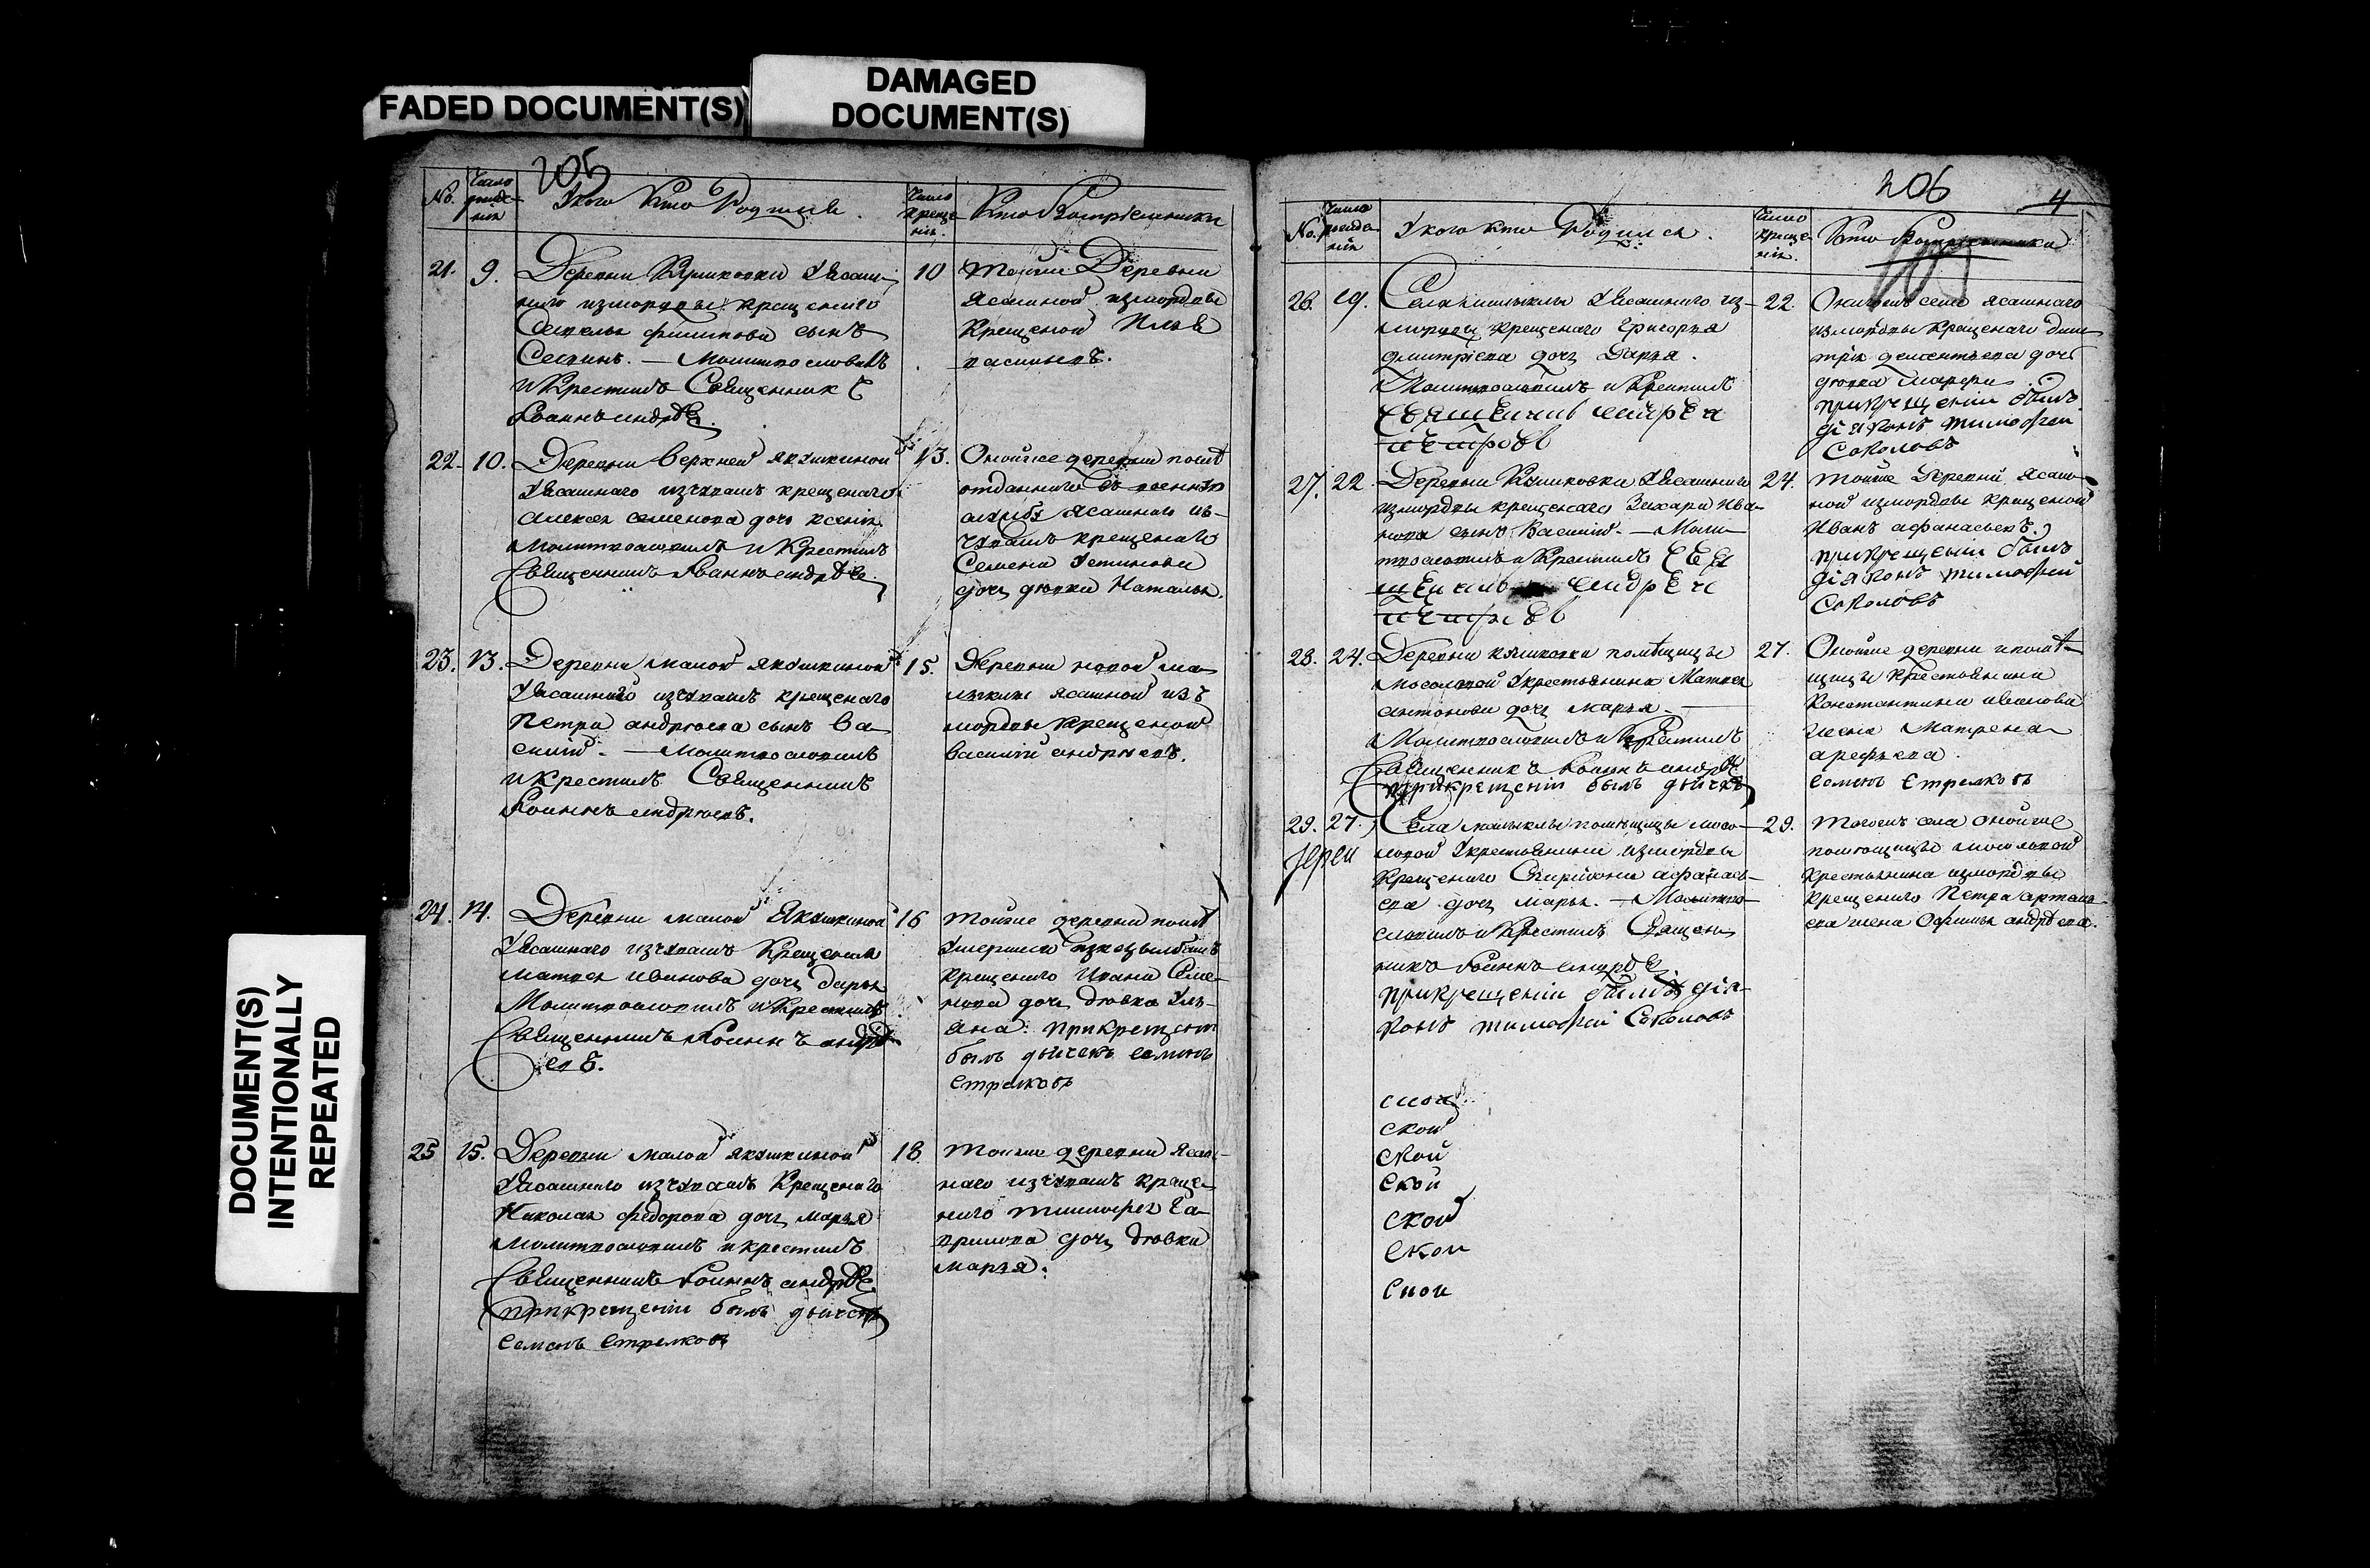 FADED DOCUMENT(S)
DAMAGED
DOCUMENT(S)
DOCUMENT(S)
INTENTIONALLY
REPEATED
205
№.
Число
рожде-
нія
Укого Кто Родился.
Число
креще-
нія.
Кто Воспріемники
21. 9. Деревни Кушковки Уясаш-
наго измордвы крещенаго
Савелья филипова сынъ
. — Молитвословилъ
и Крестилъ Священникъ
Iоаннъ андрѣе.
10 Тойже Деревни
Ясашной измордвы
Крещеной Илья
васильевъ.
22. 10. Деревни верхней якушкиной
Уясашнаго изчувашъ крещенаго
Алексея семенова дочь ксенія
Молитвословилъ и Крестилъ
Священникъ Iоаннъ андрѣе.
13. Онойже деревни
отданнаго въ военную
службу ясашнаго из-
чувашъ крещенаго
Семена Устинова
дочь дювка Наталья.
23. 13. Деревни малой якушкиной
Уясашнаго изчувашъ крещенаго
Петра андрюева сынъ ва-
силій. — Молитвословилъ
и Крестилъ Священникъ
Iоаннъ андрюевъ.
15. Деревни новой ма-
лыклы ясашной изъ
мордвы крещеной
василій андрюевъ.
24. 14. Деревни малой Якушкиной
Уясашнаго изчувашъ Крещенаго
матвея иванова дочь дарья
Молитвословилъ и Крестилъ
Священникъ Iоаннъ андрѣ-
евъ.
16 Тойже деревни
Умершаго
крещенаго Ивана Семе-
нова дочь дювка Уль-
яна. прикрещеніи
былъ дьячекъ семенъ
стрелковъ
25 15. Деревни малой якушкиной
Уясашнаго изчувашъ Крещенаго
Николая федорова дочь марья
Молитвословилъ и крестилъ
Священникъ Iоаннъ андрѣе.
прикрещеніи былъ дьячекъ
семенъ стрелковъ
18. Тойже деревни ясаш-
наго изчувашъ креще-
наго тимофея га-
врилова дочь дювка
марья.
206
4
№.
Число
рожде-
нія
Укого кто Родился.
Число
креще-
нія.
Кто Воспріемники
26. 19. Села малыклы Уясашнаго из-
мордвы крещенаго григорья
дмитріева дочь Дарья.
Молитвословилъ и Крестилъ
священникъ андрѣй
петровъ
22. Онагожъ села ясашнаго
измордвы крещенаго дми-
трія дементьева дочь
дювка
прикрещеніи былъ
діяконъ тимофеи
Соколовъ
27. 22. Деревни Кушковки Уясашнаго
измордвы крещенаго Захара Ива-
нова сынъ Василій. — Моли-
твословилъ и Крестилъ свя-
щенникъ андрѣй
петровъ
24. Тойже Деревни ясаш-
ной измордвы крещеной
Иванъ афанасьевъ.
прикрещеніи былъ
діяконъ тимофей
Соколовъ
28. 24. Деревни кушковки помѣщицы
мосоловой Укрестьянина Матвея
антонова дочь марья. —
Молитвословилъ и Крестилъ
Священникъ Iоаннъ андрѣе
прикрещеніи былъ дьячекъ
27. Онойже деревни и помѣ-
щицы крестьянина
Константина иванова
жена Матрена
арефьева.
семенъ стрелковъ
29. 27. Села малыклы помѣщицы мосо-
ловой Укрестьянина измордвы
Крещенаго Спиридона афанась-
ева дочь марья. — Молитво-
словилъ и Крестилъ Священ-
никъ Iоаннъ андрѣе
прикрещеніи былъ дія-
конъ тимофей Соколовъ
29. Тогожъ села онойже
помющицы мосоловой
крестьянина измордвы
крещенаго Петра артемь-
ева жена Офимья андрѣева.
Iереи
ской
ской
ской
ской
ской
ской
ской